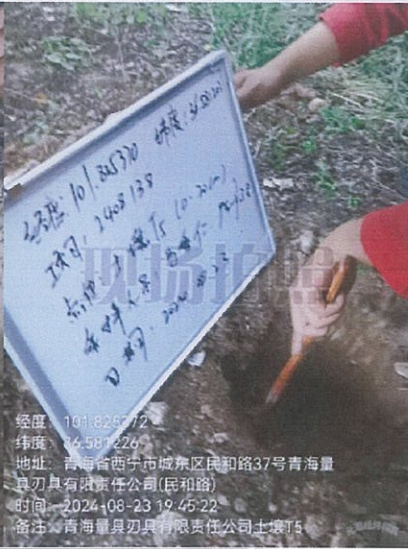 经度:101.825370 纬度:36.581201
项目:2408138
点位:土壤T5(0-20cm)
日期:2024.8.23
现场拍照
经度:101.825372
纬度:36.581226
地址:青海省西宁市城东区民和路37号青海量
具刃具有限责任公司(民和路)
时间:2024-08-23 19:45:22
备注:青海量具刃具有限责任公司土壤T5